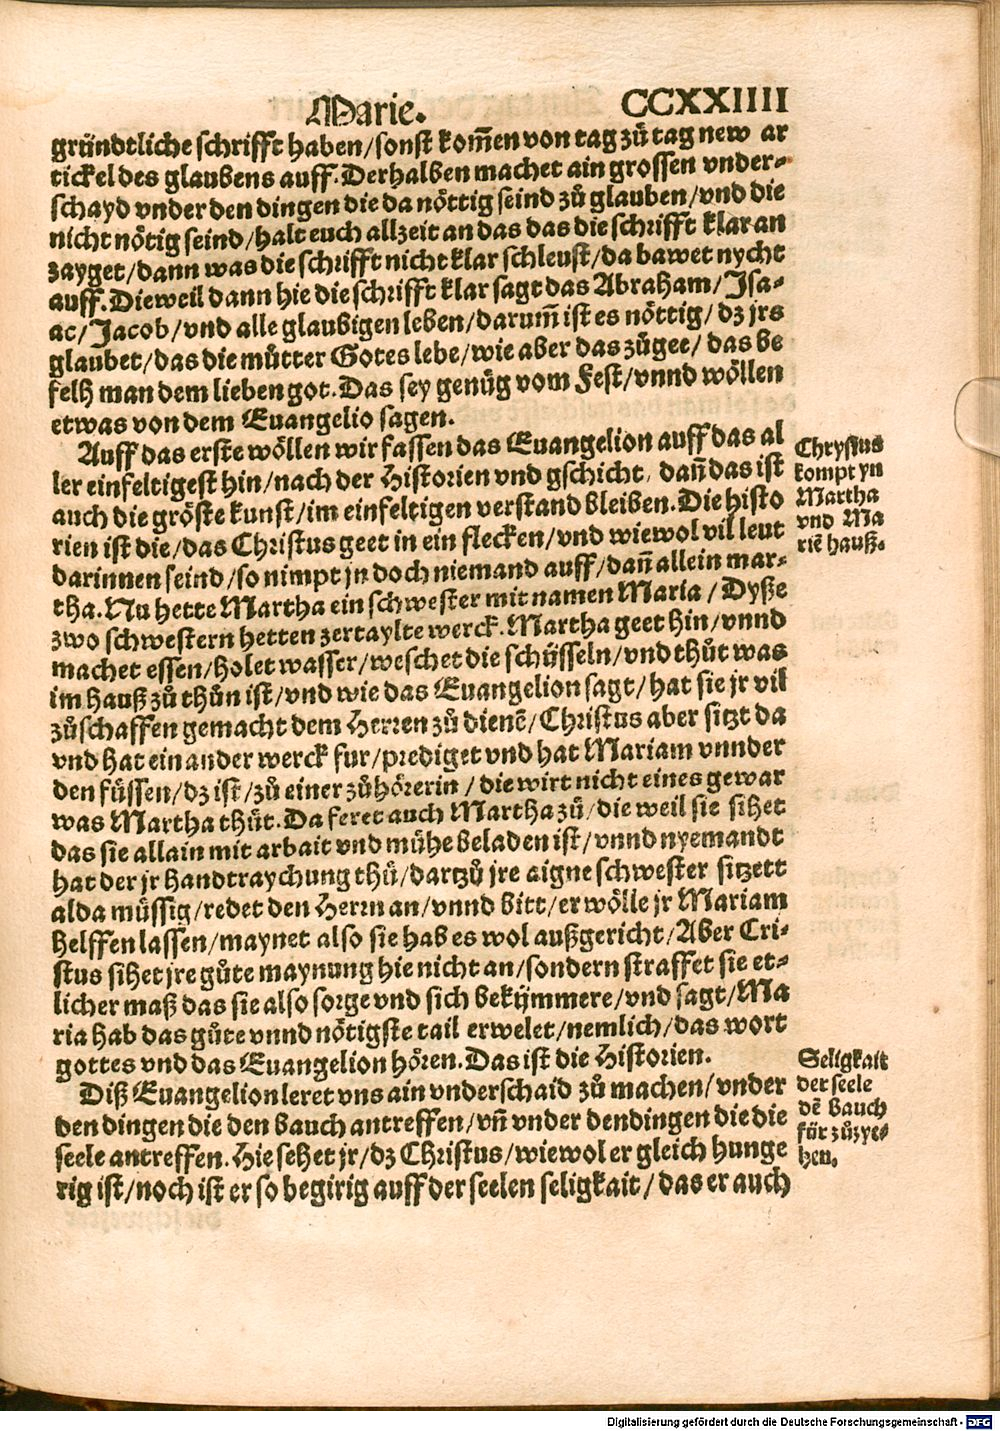 Marie. CCXXIIII
gründtliche schrifft haben/sonst kom̄en von tag zů tag new ar
tickel des glaubens auff. Derhalben machet ain grossen vnder-
schayd vnder den dingen die da nöttig seind zů glauben/vnd die
nicht nötig seind/halt euch allzeit an das das die schrifft klar an
zayget/dann was die schrifft nicht klar schleust/da bawet nycht
auff. Dieweil dann hie die schrifft klar sagt das Abraham/Isa-
ac/Jacob/vnd alle glaubigen leben/darum̄ ist es nöttig/dz jrs
glaubet/das die můtter Gotes lebe/wie aber das zůgee/das be
felh man dem lieben got. Das sey genůg vom Fest/vnnd wöllen
etwas von dem Euangelio sagen.
Auff das erste wöllen wir fassen das Euangelion auff das al
ler einfeltigest hin/nach der Historien vnd gschicht, dan̄ das ist
auch die gröste kunst/im einfeltigen verstand bleiben. Die histo
rien ist die/das Christus geet in ein flecken/vnd wiewol vil leut
darinnen seind/so nimpt jn doch niemand auff/dan̄ allein mar-
tha. Nu hette Martha ein schwester mit namen Maria/Dyße
zwo schwestern hetten zertaylte werck. Martha geet hin/vnnd
machet essen/holet wasser/weschet die schüsseln/vnd thůt was
im hauß zů thůn ist/vnd wie das Euangelion sagt/hat sie jr vil
zůschaffen gemacht dem Herren zů dienē/Christus aber sitzt da
vnd hat ein ander werck fur/prediget vnd hat Mariam vnnder
den füssen/dz ist/zů einer zůhörerin/die wirt nicht eines gewar
was Martha thůt. Da feret auch Martha zů/die weil sie sihet
das sie allain mit arbait vnd mühe beladen ist/vnnd nyemandt
hat der jr handtraychung thů/dartzů jre aigne schwester sitzett
alda müssig/redet den Herrn an/vnnd bitt/er wölle jr Mariam
helffen lassen/maynet also sie hab es wol außgericht/Aber Cri-
stus sihet jre gůte maynung hie nicht an/sondern straffet sie et-
licher maß das sie also sorge vnd sich bekümmere/vnd sagt/Ma
ria hab das gůte vnnd nötigste tail erwelet/nemlich/das wort
gottes vnd das Euangelion hören. Das ist die Historien.
Diß Euangelion leret vns ain vnderschaid zů machen/vnder
den dingen die den bauch antreffen/vn̄ vnder den dingen die die
seele antreffen. Hie sehet jr/dz Christus/wiewol er gleich hunge
rig ist/noch ist er so begirig auff der seelen seligkait/das er auch
Chrystus
kompt yn
Martha
vnd Ma
riē hauß.
Seligkait
der seele
dē bauch
für zůzye-
hen.
Digitalisierung gefördert durch die Deutsche Forschungsgemeinschaft - DFG